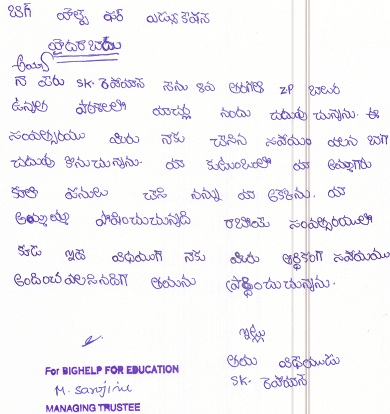 బిగ్ హెల్ప్ ఫర్ ఎడ్యుకేషన్
హైదరాబాదు
అయ్యా
నా పేరు SK. రెహానా నేను 8వ తరగతి ZP బాలుర
ఉన్నత పాఠశాలలో నందు చదువుచున్నాను. ఈ
సంవత్సరము మీరు నాకు చేసిన సహాయం వలన బాగా
చదువు కొనుచున్నాను. మా కుటుంబంలో మా అమ్మగారు
కూలి పనులు చేసి నన్ను మా
అమ్మమ్మ పోషించుచున్నది రాబోయే సంవత్సరములో
కూడ ఇదే విధముగా నాకు మీరు ఆర్థికంగా సహాయము
అందించవలసినదిగా తమరిని ప్రార్థించుచున్నాను.
ఇట్లు
తమ విధేయుడు
SK. రెహానా
For BIGHELP FOR EDUCATION
M. Sarojini
MANAGING TRUSTEE